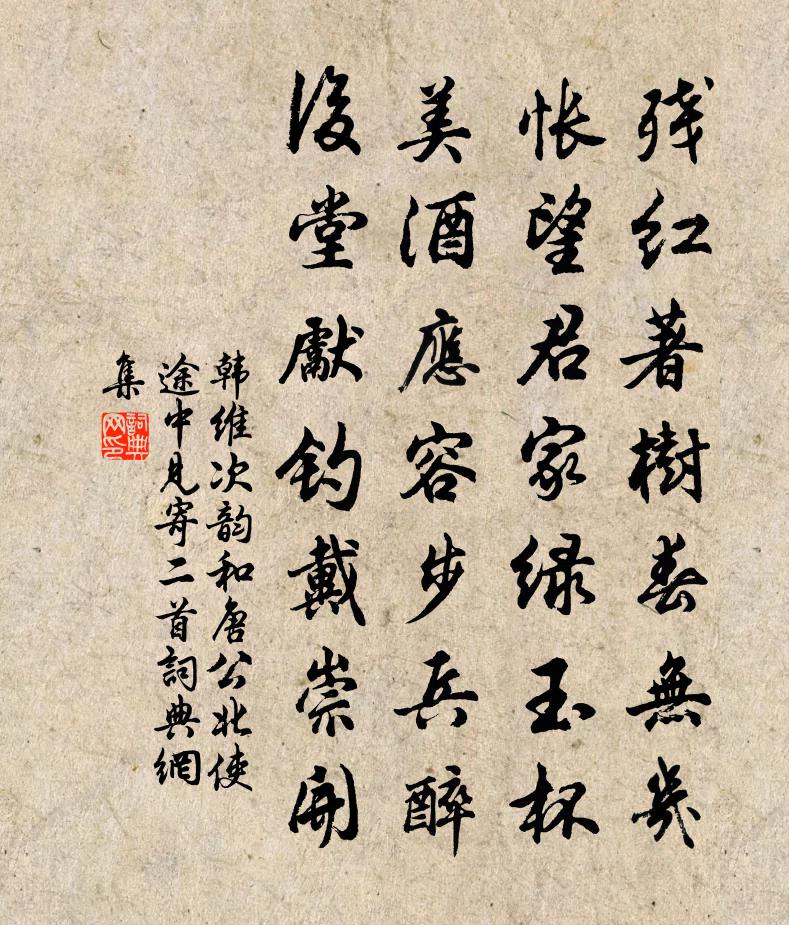 残红著樹春無幾
怅望君家绿玉杯
美酒應容步兵醉
後堂獻钓戴崇開
韩维次韵和唐公北使
途中見寄二首詞典網
集
詞典网印